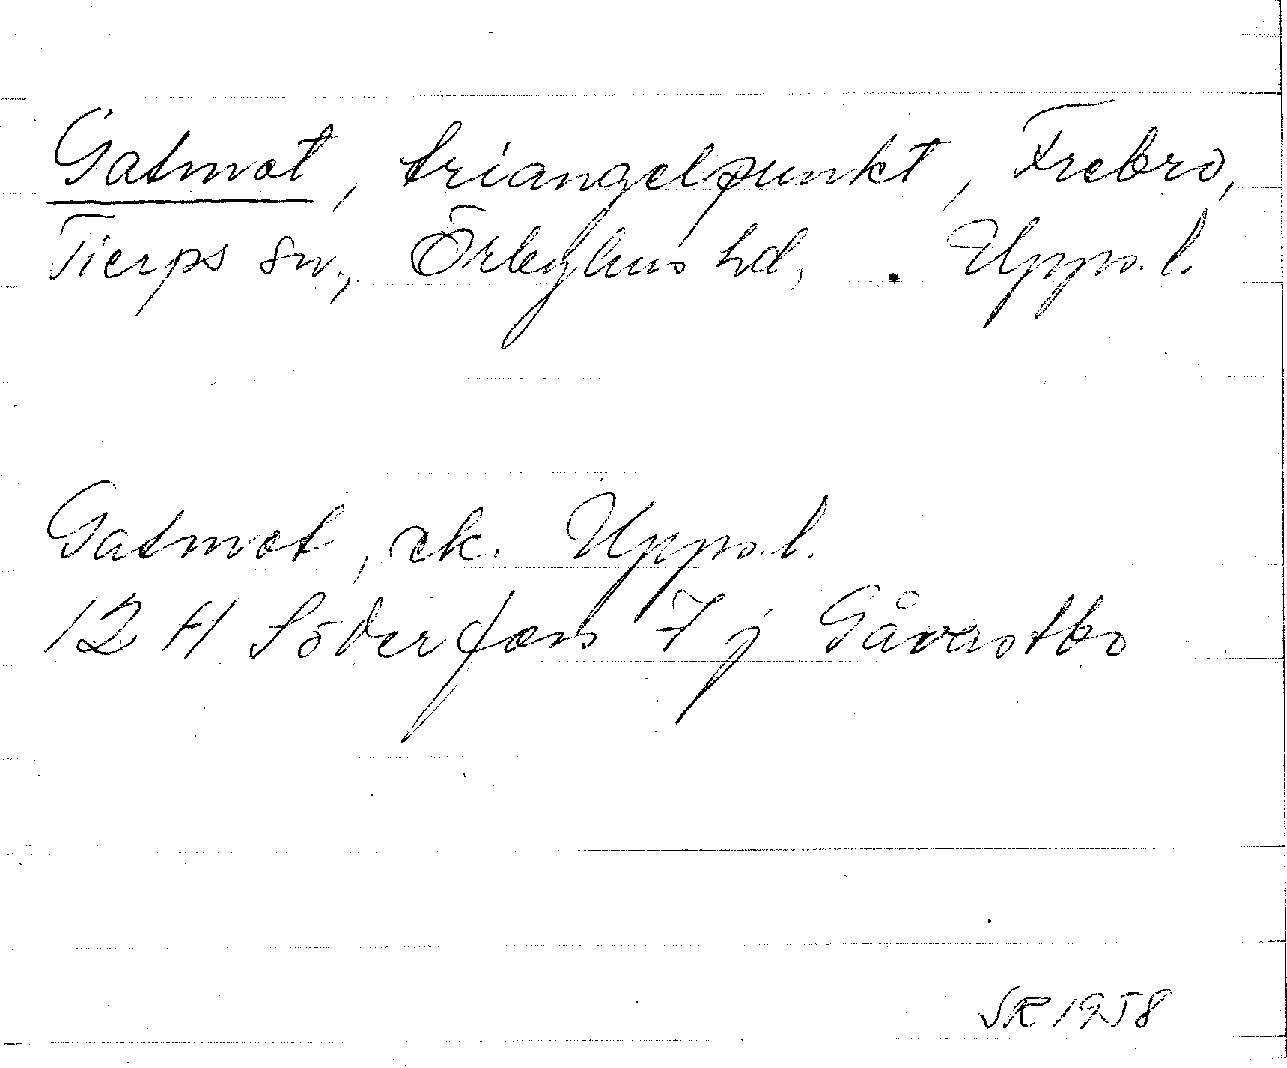 Gatmot, triangelpunkt, Frebro,
Tierps sn, Örbyhus hd, Upps. l.
Gatmot, ek. Upps. l.
12 H Söderfors 7 j Gåvastbo
SR 1958